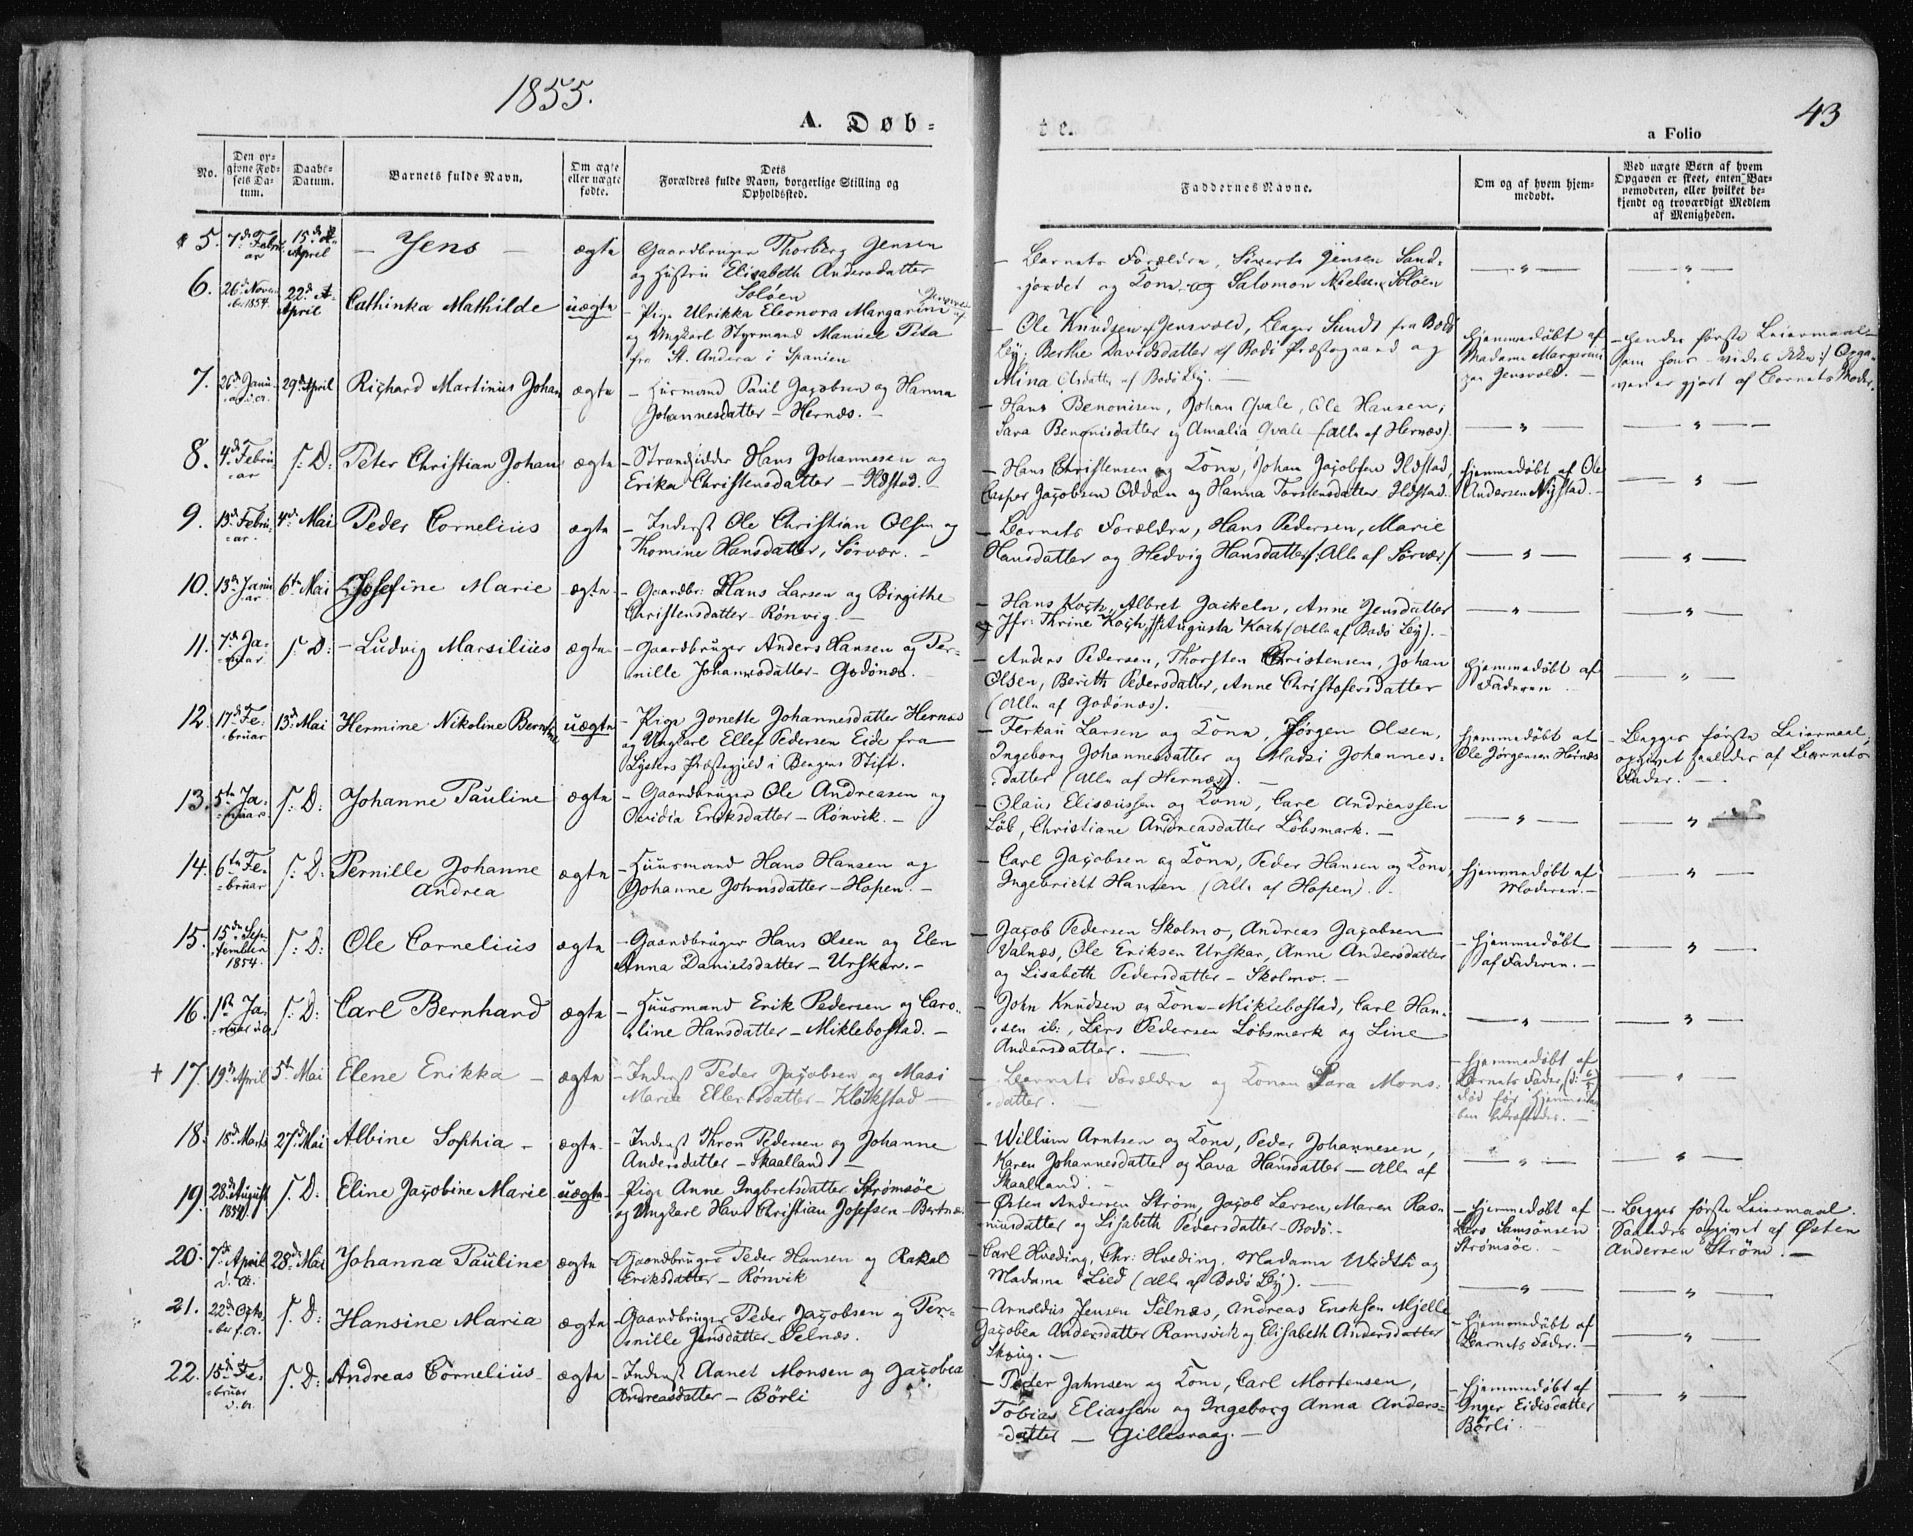 1855.
43
A. Døb-
te.
a Folio
No.
Den op-
givne Fød-
sels Da-
tum.
Daabs-
Datum.
Barnets fulde Navn.
Om ægte
eller uægte
fødte.
Dets
Forældres fulde Navn, borgerlige Stilling og
Opholdssted.
Faddernes Navne.
Om og af hvem hjem-
medøbt.
Ved uægte Børn af hvem
Opgaven er skeet, enten Bar-
nemoderen, eller hvilket be-
kjendt og troværdigt Medlem
af Menigheden.
5. 7de Febru-
ar
15de
April
– Jens –
ægte
Gaardbruger Thorberg Jensen
og Hustru Elisabeth Andersdatter
Soløen
– Barnets Forældre, Siverts Jensen Sand-
jordet og Kone og Salomon Nielsen Soløen
6. 26de Novem-
ber 1854.
22de A-
April
Cathinka Mathilde
uægte
– Pige Ulrikka Eleonora Margarine Jensvold
og Ungkarl Styrmand Manuel Peta
fra St. Andera i Spanien
– Ole Knudsen af Jensvold, Bager Sundt fra Bodø
By; Berthe Davidsdatter af Bodø Præstegaard og
Alina Olsdatter af Bodø By. –
hjemmedøbt af
Madame Margrethe
paa Jensvold. –
– hendes første Leiermaal
som hun vides ikke :/ Opga-
ven er gjort af Barnets Moder.
7. 26de Janu-
ar d. A.
29de April
Richard Martinus Johan
ægte
– Huusmand Paul Jacobsen og Hanna
Johannesdatter – Hernæs. –
– Hans Benonisen, Johan Qvale, Ole Hansen,
Sara Benonisdatter og Amalia Qvale – (Alle af Hernæs)
8. 4de Febru-
ar
S: D:
Peter Christian Johan
ægte
– Strandsidder Hans Johannesen og
Erika Christensdatter – Ildstad. –
– Hans Christensen og Kone, Johan Jacobsen Ildstad,
Casper Jacobsen Oddan og Hanna Torstensdatter Ildstad.
hjemmedøbt af Ole
Andersen Nystad. –
9. 13de Febru-
ar.
4de Mai
Peder Cornelius
ægte
– Inderst Ole Christian Olsen og
Thomine Hansdatter, Sørvær. –
– Barnets Forældre, Hans Pedersen, Marie
Hansdatter og Hedvig Hansdatter /: Alle af Sørvær:/
10. 13de Janu-
ar
6te Mai
Josefine Marie
ægte
– Gaardbr: Hans Larsen og Birgithe
Christensdatter – Rønvig. –
– Hans Koch, Albret Jaikeln, Anne Jensdatter
og Jfr: Thrine Koch, Jfr Augusta Koch (Alle af Bodø By). –
11. 7de Ja-
nuar
S: D:
– Ludvig Marsilius
ægte
– Gaardbruger Anders Hansen og Per-
nille Johannesdatter – Godønæs. –
– Anders Pedersen, Thorsten Christensen, Johan
Olsen, Berith Pedersdatter, Anne Christofersdatter
(Alle af Godønæs).
hjemmedøbt af
Faderen
12. 17de Fe-
bruar
13de Mai
Hermine Nikoline Berntine
uægte
– Pige Jonette Johannesdatter Hernæs
og Ungkarl Elles Pedersen Eide fra
Lysters Præstegjeld i Bergens Stift.
– Ferkan Larsen og Kone, Jørgen Olsen,
Ingeborg Johannesdatter og Madsi Johannes-
datter (Alle af Hernæs). –
hjemmedøbt af
Ole Jørgensen Hernæs
– Begges første Leiermaal,
opgivet saaledes af Barnets
Fader. –
13. 5te Ja-
nuar
S: D:
Johanne Pauline
ægte
– Gaardbruger Ole Andreasen og
Ovidia Eriksdatter – Rønvik. –
– Olaus Elisæussen og Kone, Carl Andreassen
Løb, Christiane Andreasdatter Løbsmark. –
14. 6te Fe-
bruar
S: D:
Pernille Johanne
Andrea
ægte
– Huusmand Hans Hansen og
Johanne Johnsdatter – Hopen. –
– Carl Jacobsen og Kone, Peder Hansen og Kone
Ingebricht Hansen (Alle af Hopen).
hjemmedøbt af
Moderen. –
15. 15de Sep-
tember
1854.
S: D:
Ole Cornelius
ægte
– Gaardbruger Hans Olsen og Elen
Anna Danielsdatter – Urskar. –
– Jacob Pedersen Skolmo, Andreas Jacobsen
Valnæs, Ole Eriksen Urskar, Anne Andersdatter
og Lisabeth Pedersdatter – Skolmo. –
– hjemmedøbt
af Faderen. –
16. 1ste Ja-
nuar d. A.
S: D:
Carl Bernhard
ægte
– Huusmand Erik Pedersen og Caro-
line Hansdatter – Miklebostad. –
– John Knudsen og Kone – Miklebostad, Carl Han-
sen ib:, Lars Pedersen Løbsmark og Line
Andersdatter. –
† 17. 19de April
5te Mai
Elene Erikka –
ægte
– Inderst Peder Jacobsen og Masi
Maria Ellertsdatter – Kløkstad –
– Barnets Forældre og Konen Sara Mons-
datter. –
– hjemmedøbt af
Barnets Fader,
død før Hjemmedaa-
ben bekræftedes. –
18. 18de Marts
27de Mai
Albine Sophia –
ægte
– Inderst Thron Pedersen og Johanne
Andersdatter – Skaalland –
– Willum Arntsen og Kone, Peder Johannesen,
Karen Johannesdatter og Lava Hansdatter – Alle af
Skaalland. –
19. 28de August
1854
S: D:
Eline Jacobine Marie
uægte
– Pige Anne Ingbretsdatter Strømsøe
og Ungkarl Hans Christian Josefsen – Bertnæs
– Østen Andersen Strøm, Jacob Larsen, Maren Ras-
musdatter og Lisabeth Pedersdatter – Bodø. –
– hjemmedøbt af
Lars Samsonsen
Strømsøe. –
– Begges første Leiermaal.
Saaledes opgivet af Østen
Andersen Strøm. –
20. 7de April
d. A.
28de Mai
Johanna Pauline
ægte
– Gaardbruger Peder Hansen og Rakel
Eriksdatter – Rønvik
– Carl Hveding, Chr: Hveding, Madame Width og
Madame Lied (Alle af Bodø By). –
21. 22de Octo-
ber f. A.
S: D:
Hansine Maria
ægte
– Gaardbruger Peder Jacobsen og Per-
nille Jensdatter – Selnæs.
– Arnoldus Jensen Selnæs, Andreas Eriksen Mjelle
Jacobea Andersdatter Ramsvik og Elisabeth Andersdatter
Skoug. –
– hjemmedøbt af
Barnets Fader. –
22. 15de Fe-
bruar
d. A.
S: D:
Andreas Cornelius –
ægte
– Inderst Aanet Monsen og Jacobea
Andreasdatter – Børli
– Peder Jahnsen og Kone, Carl Mortensen,
Tobias Eliassen og Ingeborg Anna Anders-
datter – Gillesvaag. –
– hjemmedøbt af
Inger Eidisdatter
Børli